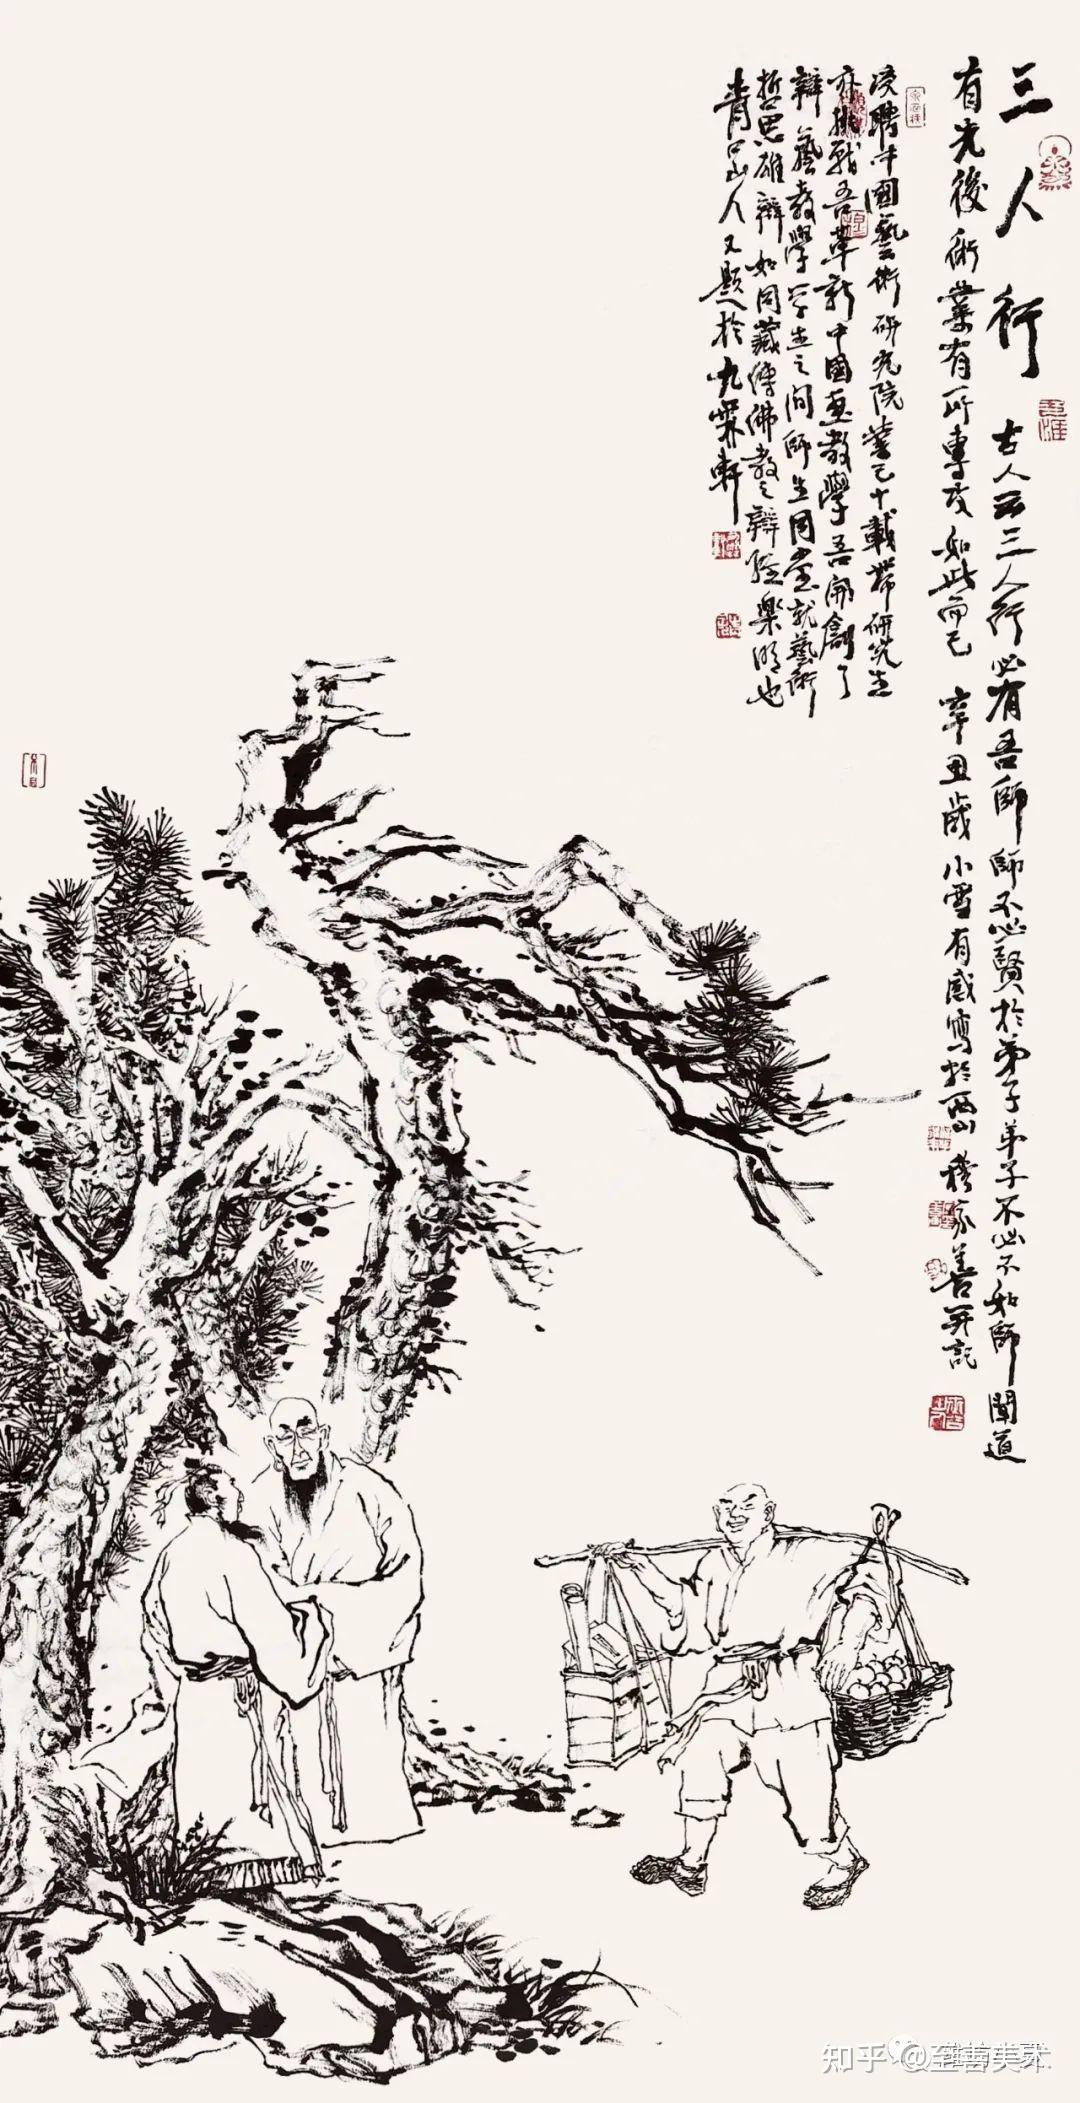 三人行 古人云三人行必有吾師師不必賢於弟子弟子不必不如師聞道
有先後術業有所專攻如此而已 辛丑歲小雪有感寫於西山 穆家善并記
受聘中國藝術研究院業已十載帶研究生
亦挑戰吾革新中國画教學吾開創了
辯藝教學學生之間師生同堂就藝術
哲思雄辯如同藏傳佛教之辯經樂趣也
青山人又題於九霖軒
知乎 @至善美术